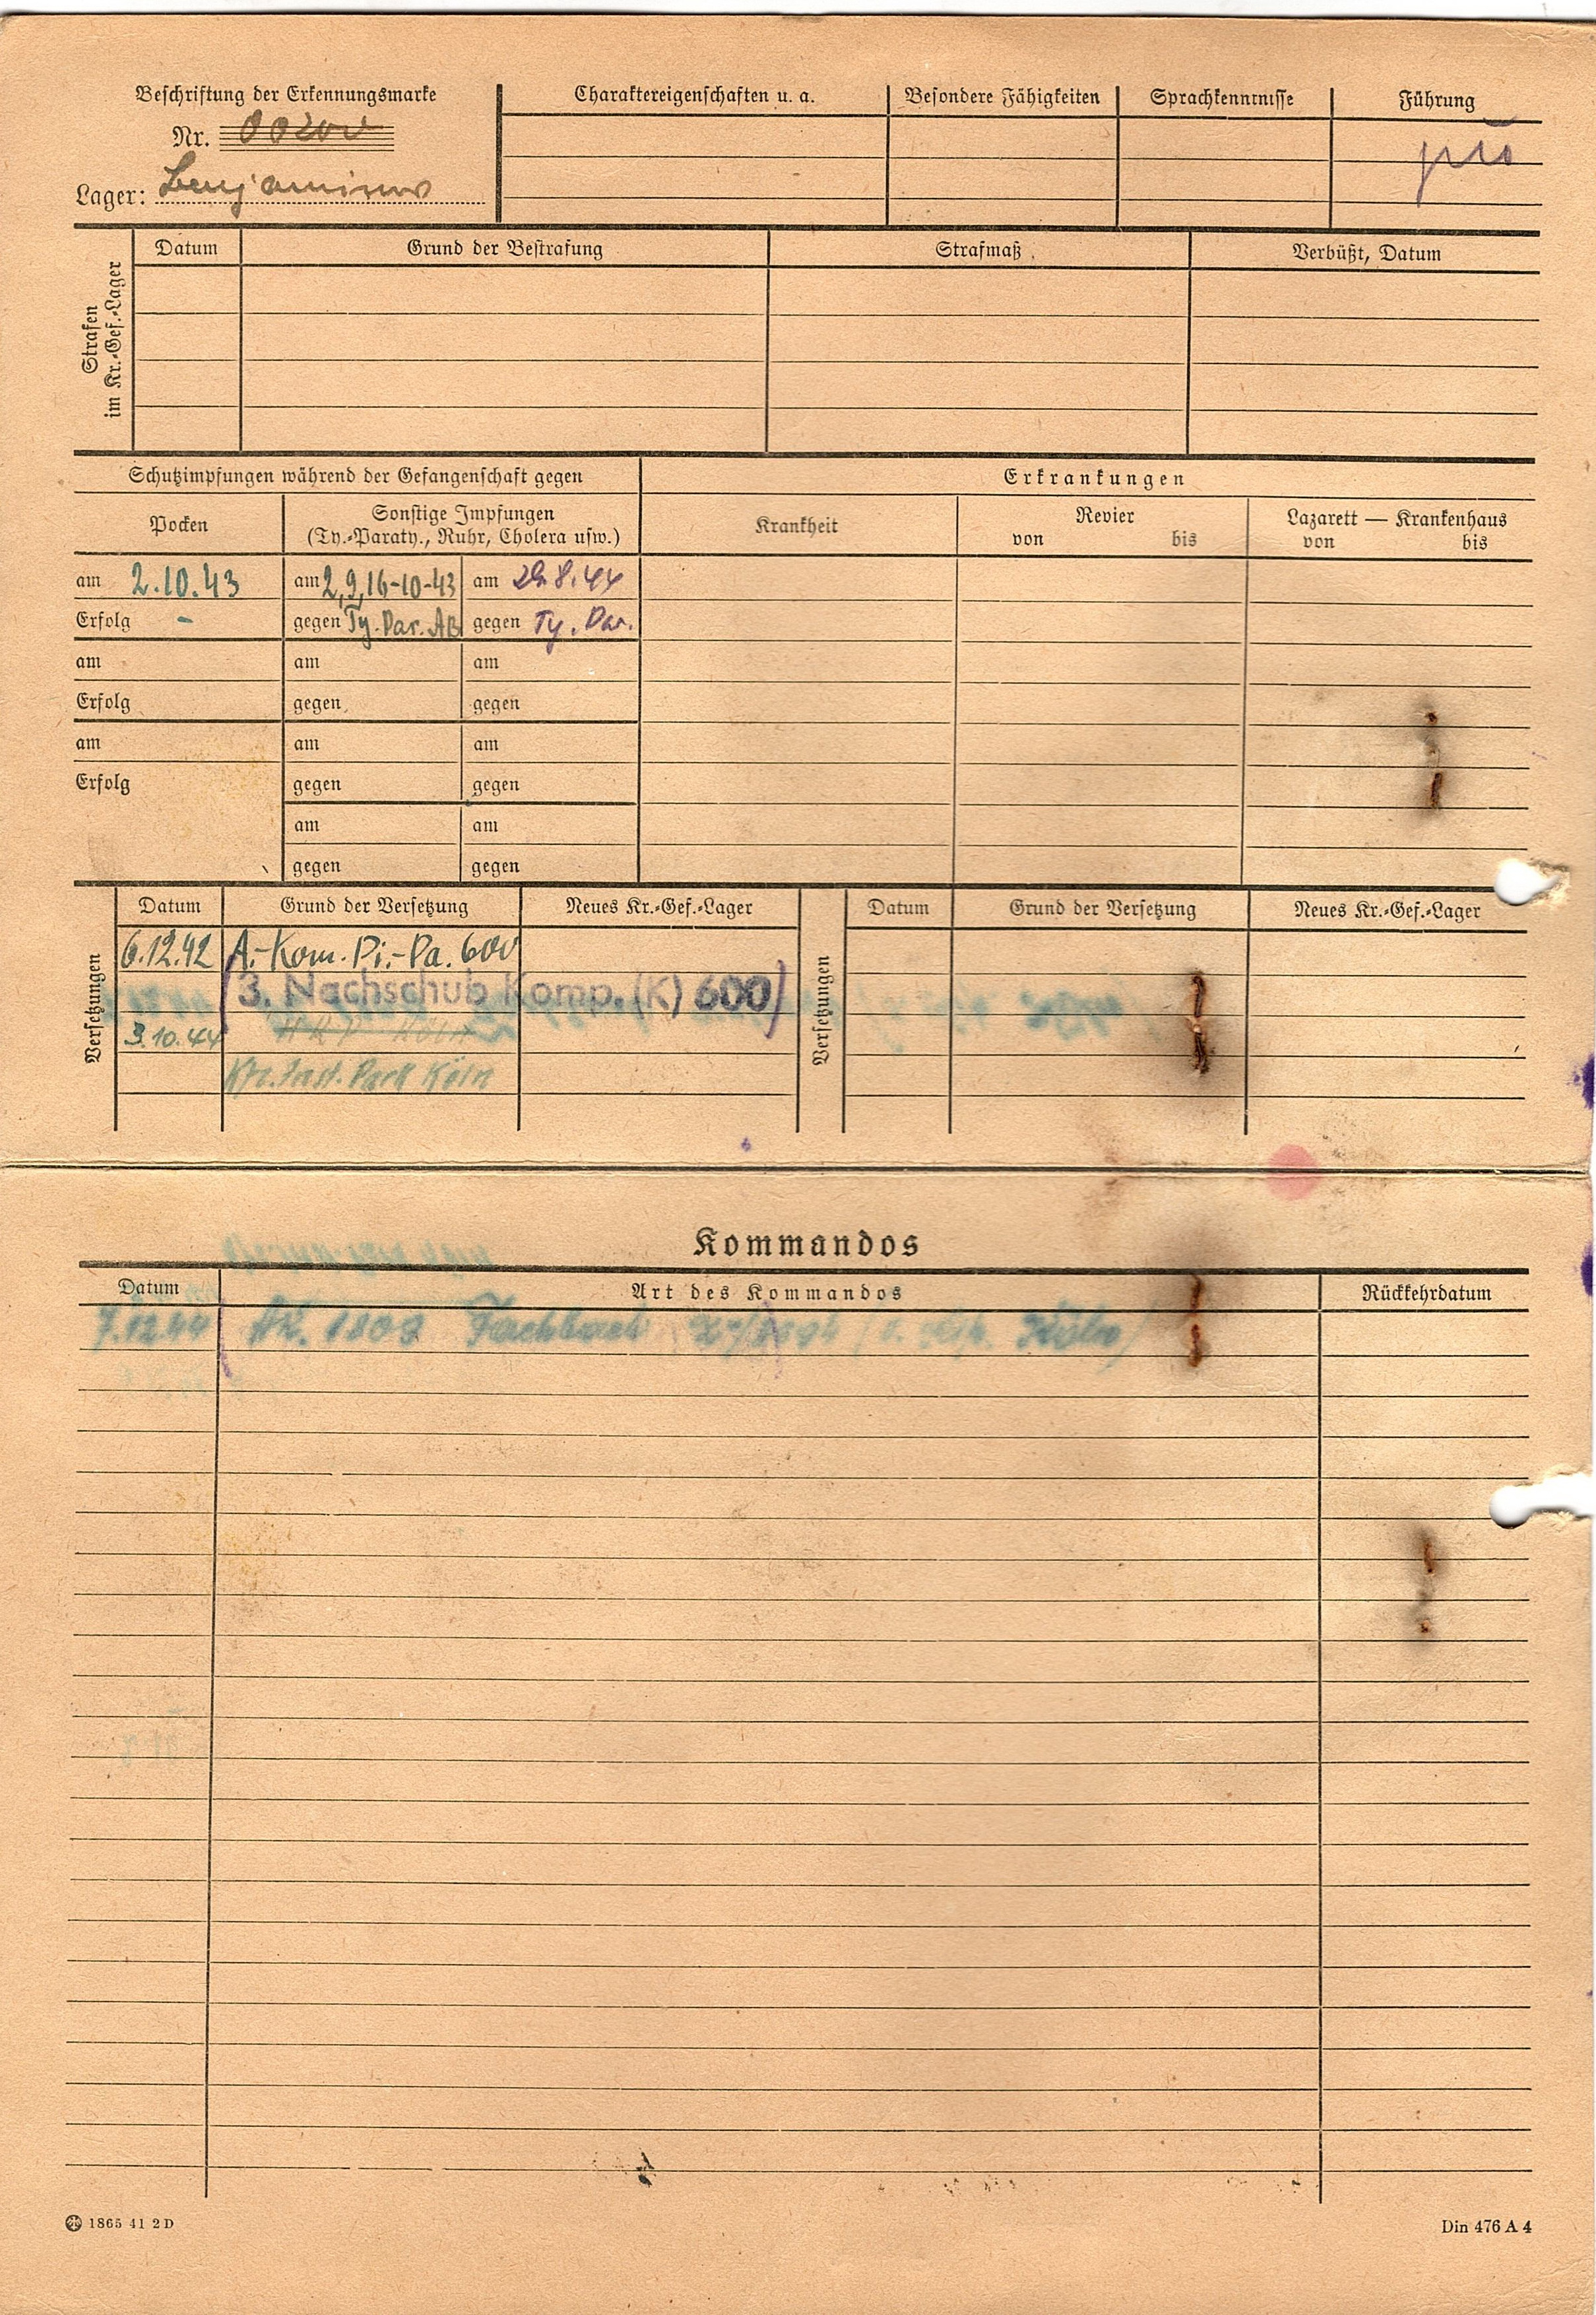 Beschriftung der Erkennungsmarke
Nr.
Lager: Benjaminow
Charaktereigenschaften u. a.
Besondere Fähigkeiten
Sprachkenntnisse
Führung
Strafen im Kr.-Gef.-Lager
Datum
Grund der Bestrafung
Strafmaß
Verbüßt, Datum
Schutzimpfungen während der Gefangenschaft gegen
Erkrankungen
Pocken
Sonstige Impfungen
(Ty.-Paraty., Ruhr, Cholera usw.)
Krankheit
Revier
von bis
Lazarett — Krankenhaus
von bis
am 2.10.43 am 2,9,16-10-43 am 29.8.44
Erfolg - gegen Ty. Par. AB gegen Ty. Par.
am am am
Erfolg gegen gegen
am am am
Erfolg gegen gegen
am am
gegen gegen
Versetzungen
Datum Grund der Versetzung Neues Kr.-Gef.-Lager
6.12.42 A.-Kom. Pi.-Pa. 600
(3. Nachschub Komp. (K) 600)
3.10.44
Kfz. Inst. Park Köln
Versetzungen
Datum Grund der Versetzung Neues Kr.-Gef.-Lager
Kommandos
Datum Art des Kommandos Rückkehrdatum
7.12.44 Köln)
1865 41 2 D
Din 476 A 4